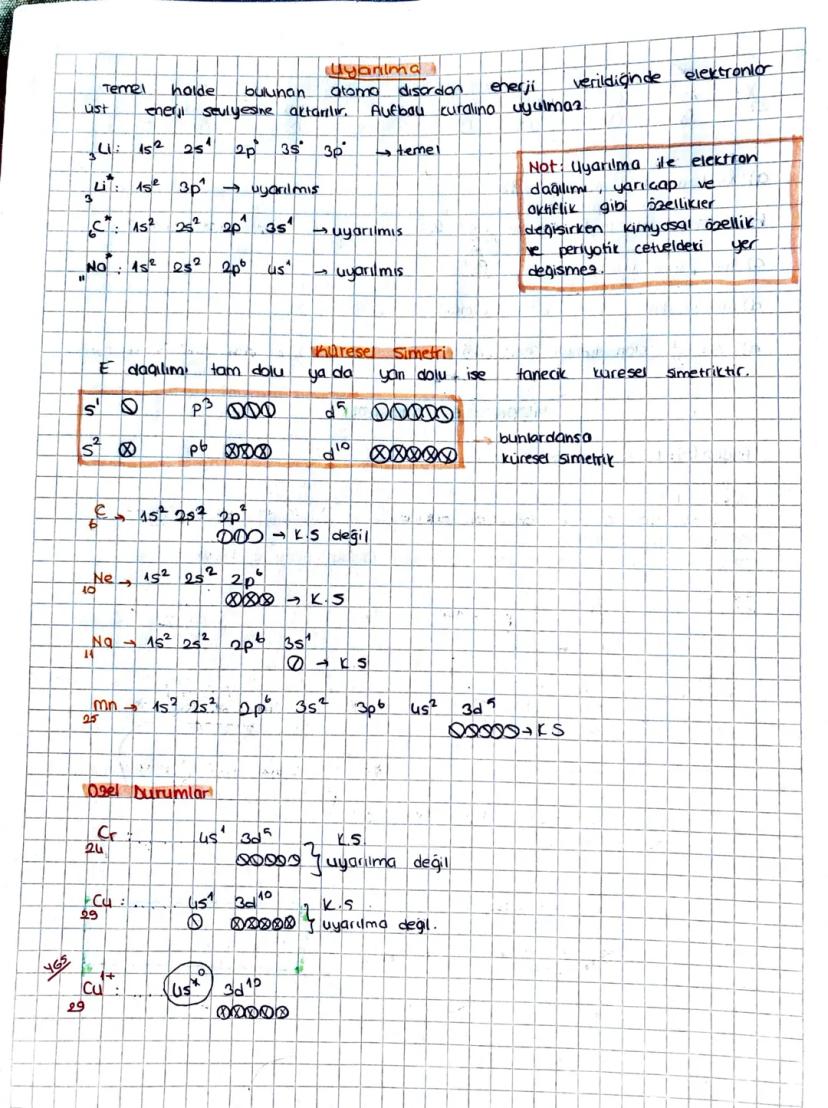 Uyarılma
Temel halde bulunan atoma dısardan enerji verildiğinde elektronlar
üst enerji seviyesine aktarılır. Aufbau kuralına uyulmaz
₃Li: 1s² 2s¹ 2p⁰ 3s⁰ 3p⁰ → temel
₃Li*: 1s² 3p¹ → uyarılmıs
₆C*: 1s² 2s² 2p¹ 3s¹ → uyarılmıs
₁₁Na*: 1s² 2s² 2p⁶ 4s¹ → uyarılmıs
Not: Uyarılma ile elektron
dağılımı, yarıcap ve
aktiflik gibi özellikler
değisirken kimyasal özellik
ve periyotik cetveldeki yer
değismez.
Küresel Simetri
E dağılımı tam dolu ya da yarı dolu ise tanecik küresel simetriktir.
s¹ p³ d⁵
s² p⁶ d¹⁰
→ bunlardansa
küresel simetrik
₆C → 1s² 2s² 2p²
→ K.S değil
₁₀Ne → 1s² 2s² 2p⁶
→ K.S
₁₁Na → 1s² 2s² 2p⁶ 3s¹
→ K S
₂₅Mn → 1s² 2s² 2p⁶ 3s² 3p⁶ 4s² 3d⁵
→ K S
Özel Durumlar
₂₄Cr : ...... 4s¹ 3d⁵ } K.S.
uyarılma değil
₂₉Cu : ...... 4s¹ 3d¹⁰ } K.S.
uyarılma değl.
YGS
₂₉Cu¹⁺ : ...... 4s⁰ 3d¹⁰